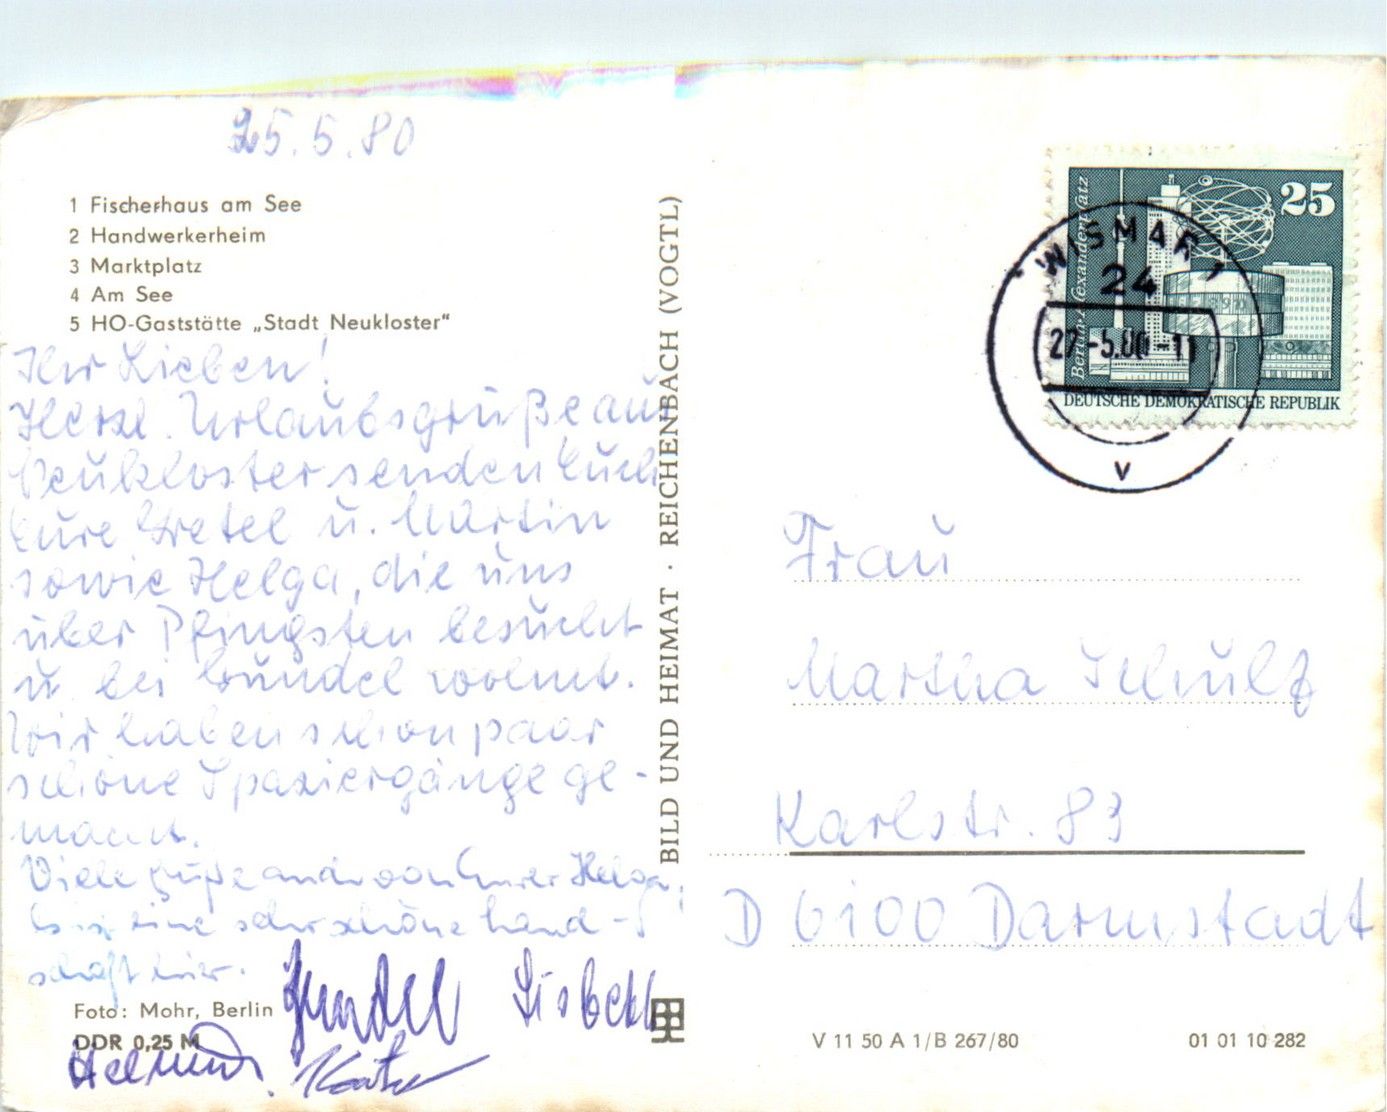 25.5.80
1 Fischerhaus am See
2 Handwerkerheim
3 Marktplatz
4 Am See
5 HO-Gaststätte „Stadt Neukloster“
Ihr Lieben!
Herzl. Urlaubsgrüße aus
Neukloster senden Euch
Eure Gretel u. Martin
sowie Helga, die uns
über Pfingsten besucht
u. bei Gundel wohnt.
Wir haben schon paar
schöne Spaziergänge ge-
macht.
Viele Grüße auch von Eurer Helga,
Es ist eine sehr schöne Land-
schaft hier.
Gundel Lisbeth
Foto: Mohr, Berlin
DDR 0,25 M
Helmut
BILD UND HEIMAT · REICHENBACH (VOGTL)
25
Berlin-Alexanderplatz
DEUTSCHE DEMOKRATISCHE REPUBLIK
WISMAR 1
24
27.-5.80-11
v
Frau
Martha Schulz
Karlstr. 83
D 6100 Darmstadt
V 11 50 A 1/B 267/80
01 01 10 282